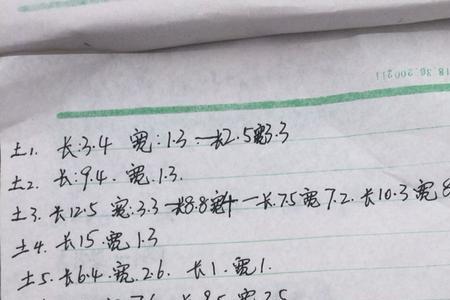 土1. 长:3.4 宽:1.3 一长2.5宽3.3
土2. 长:9.4. 宽.1.3.
土3. 长12.5 宽:3.3 一长7.5宽7.2. 长10.3宽8
土4. 长15.宽1.3
土5. 长6.4.宽.2.6. 长1.宽1.